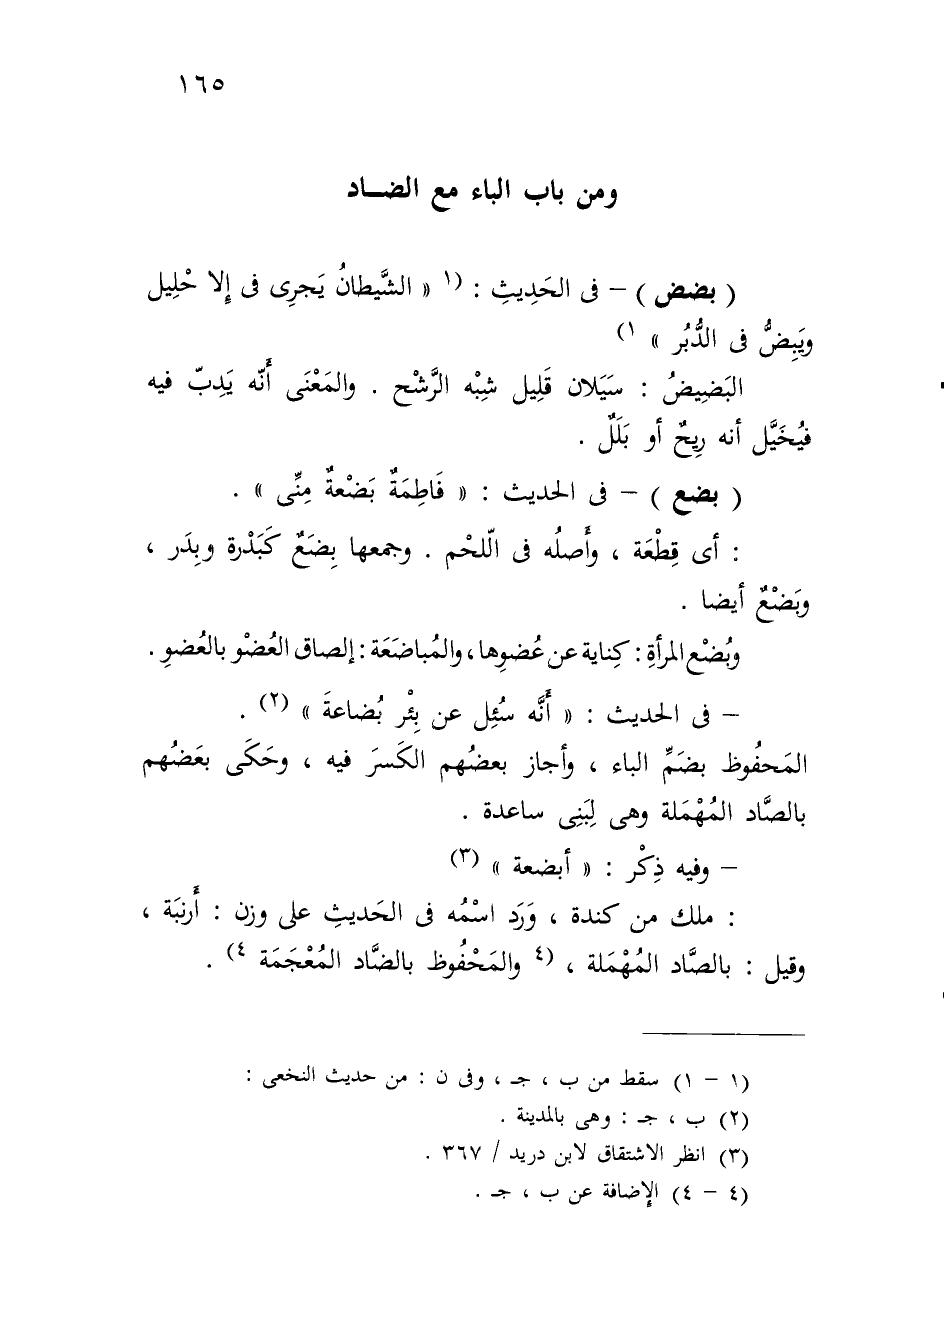 ١٦٥
ومن باب الباء مع الضـــاد
( بضض ) – فى الحَدِيثِ : (١ « الشَّيطانُ يَجرِى فى إلا حْلِيل
ويَبِضُّ فى الدُّبُر » ١)
البَضِيضُ : سَيَلان قَلِيل شِبْه الرَّشْح . والمَعْنَى أَنّه يَدِبّ فيه
فيُخَيَّل أنه رِيحٌ أو بَلَلٌ .
( بضع ) – فى الحديث : « فَاطِمَةٌ بَضْعةٌ مِنِّى » .
: أى قِطْعَة ، وأَصلُه فى الّلحْم . وجمعها بِضَعٌ كَبَدْرة وبِدَر ،
وبَضْعٌ أيضا .
وبُضْع المرأةِ : كِناية عن عُضوِها ، والمُباضَعَة : إلصاق العُضْو بالعُضوِ .
– فى الحديث : « أَنَّه سُئِل عن بِئْر بُضاعةَ » (٢) .
المَحفُوظ بضَمِّ الباء ، وأجاز بعضُهم الكَسرَ فيه ، وحَكَى بعَضُهم
بالصَّاد المُهْمَلة وهى لِبَنِى ساعدة .
– وفيه ذِكْر : « أبضعة » (٣)
: ملك من كندة ، وَرَد اسْمُه فى الحَديثِ على وزن : أَرنبَة ،
وقيل : بالصَّاد المُهْمَلة ، (٤ والمَحْفُوظ بالضَّاد المُعْجَمَة ٤) .
(١ – ١) سقط من ب ، جـ ، وفى ن : من حديث النخعى :
(٢) ب ، جـ : وهى بالمدينة .
(٣) انظر الاشتقاق لابن دريد / ٣٦٧ .
(٤ – ٤) الإضافة عن ب ، جـ .